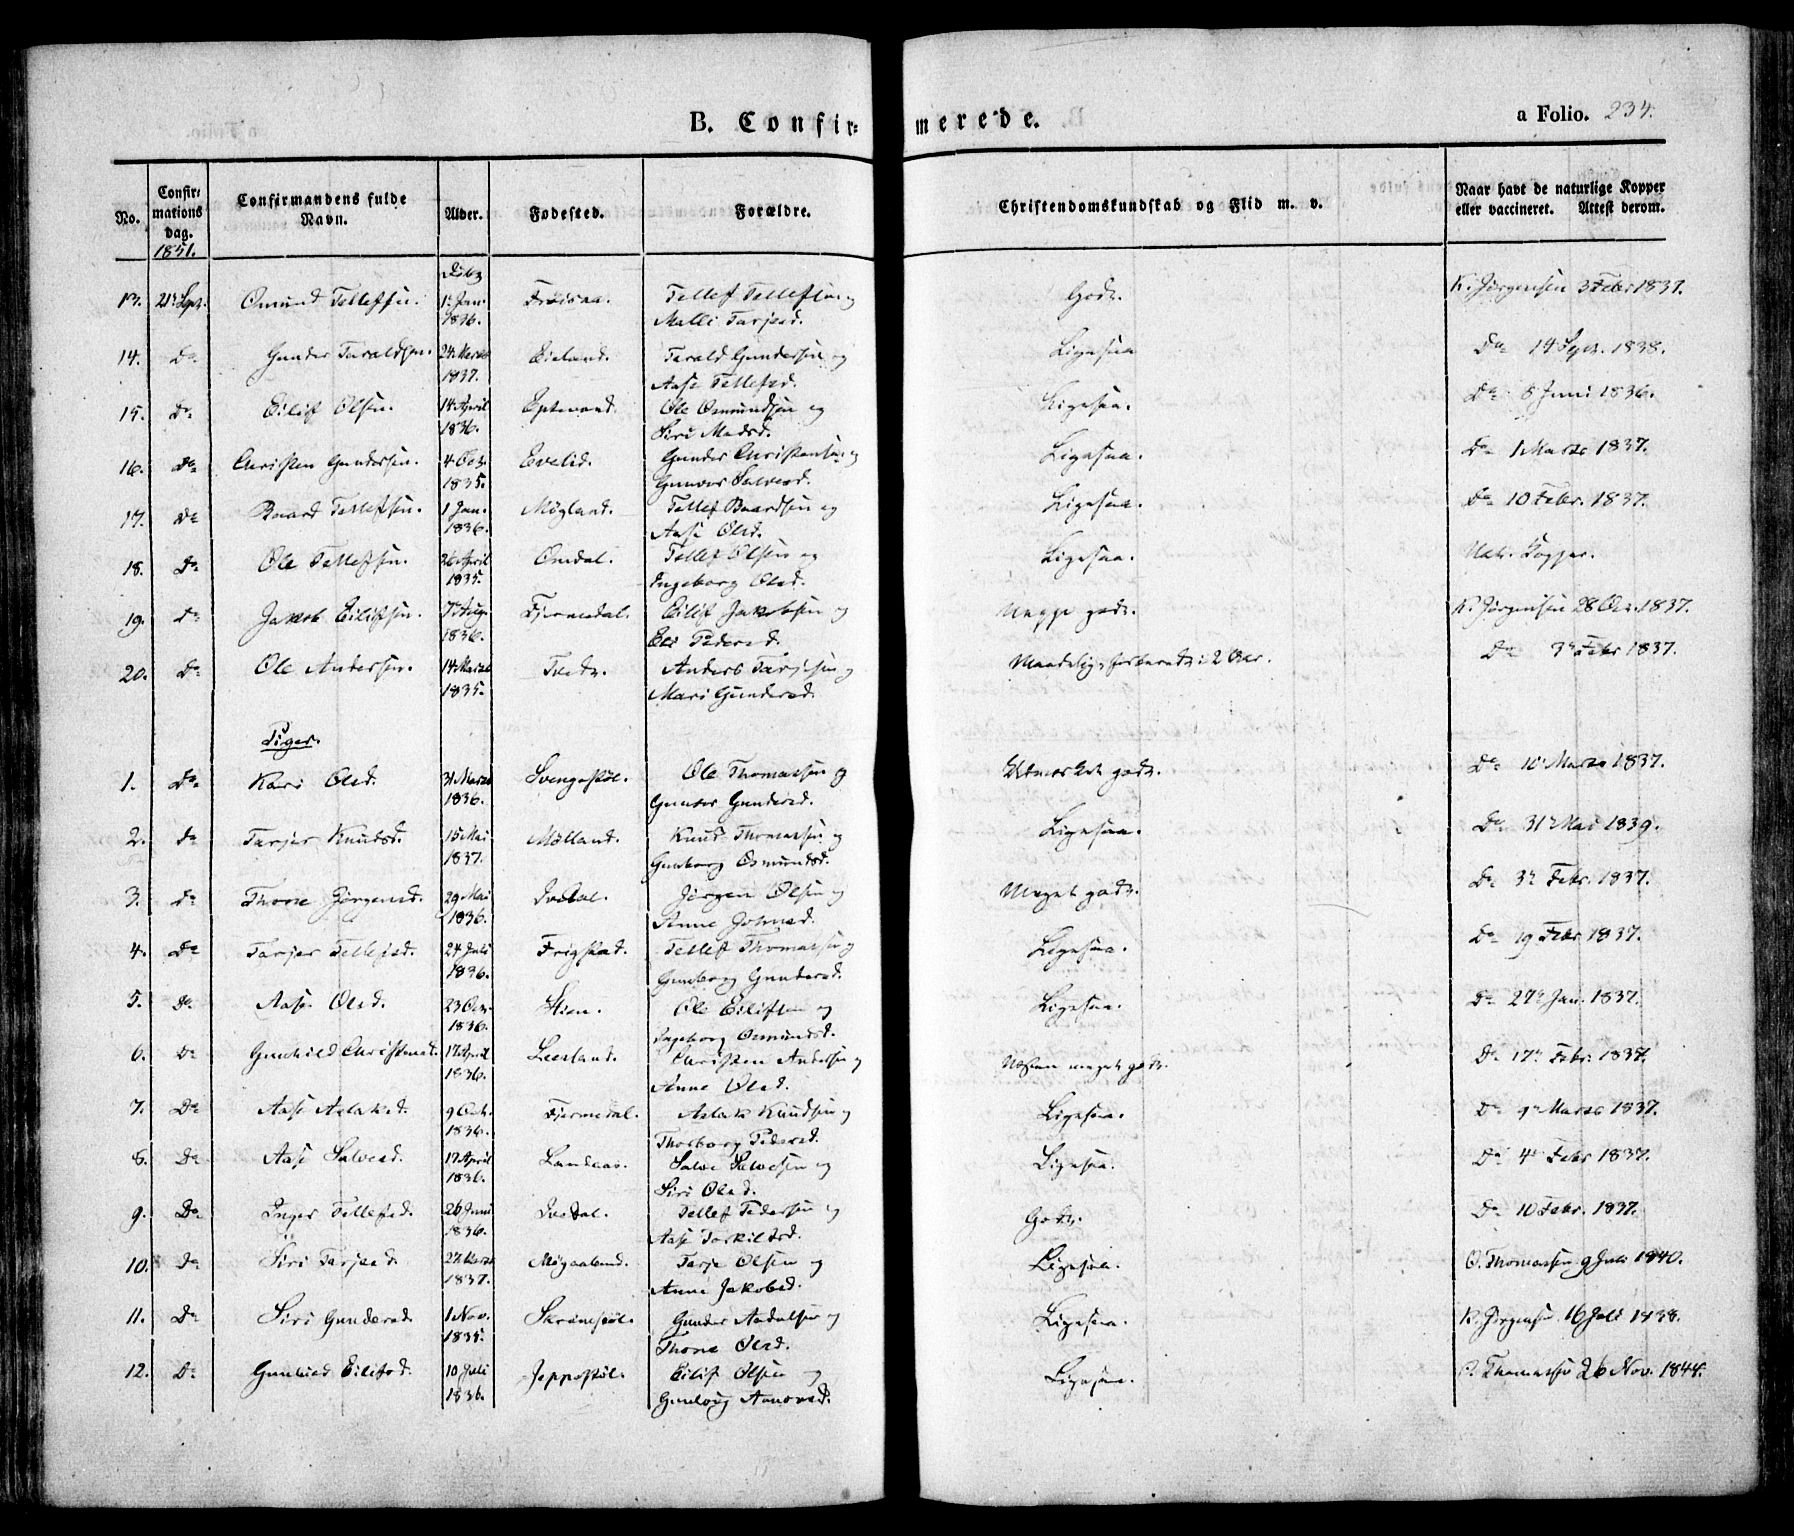 B. Confir-merede.
a Folio. 234.
No. Confir-mations dag. Confirmandens fulde Navn. Alder. Fødested. Forældre. Christendomskundskab og Flid m. v. Naar havt de naturlige Kopper eller vaccineret. Attest derom.
1851.
13. 21 Sept. Omund Tellefsen. 1 Jan. Frøisaa. Tellef Tellefsen og Godt. K. Jørgensen 3 Febr 1837.
1836. Malli Tarjesd.
14. Do Gunder Taraldsen. 24 Marts Eieland. Tarald Gundersen og Ligesaa Do 14 Sept. 1838.
1837. Aase Tellefsd.
15. Do Eilif Olsen. 14 April Eptevand. Ole Osmundsen og Ligesaa. Do 8 Juni 1836.
1836. Siri Madsd.
16. Do Christen Gundersen. 4 Oct. Evelid. Gunder Christensen og Ligesaa. Do 1 Marts 1837.
1835. Gunvor Salvesd.
17. Do Baard Tellefsen. 1 Jan. Møgland. Tellef Baardsen og Ligesaa. Do 10 Febr. 1837.
1836. Aase Olsd.
18. Do Ole Tellefsen. 26 April Omdal. Tellef Olsen og Ligesaa. Nat. Kopper.
1835. Ingeborg Olsd.
19. Do Jakob Eilifsen. 7 Aug. Fjermedal. Eilif Jakobsen og Neppe godt. K. Jørgensen 28 Oct. 1837.
1836. Eli Pedersd.
20. Do Ole Andersen. 14 Marts Tvedt. Anders Tarjesen og Maadelig, forberedt i 2 Aar. Do 3 Febr 1837.
1835. Mari Gundersd.
Piger.
1. Do Kari Olsd. 31 Marts Svengestøl. Ole Thomassen og Udmærket godt. Do 10 Marts 1837.
1836. Gunvor Gundersd.
2. Do Tarjer Knudsd. 15 Mai Mølland. Knud Thomassen og Ligesaa. Do 31 Mai 1839.
1837. Gunborg Osmundsd.
3. Do Thone Jørgensd. 29 Mai Ivedal. Jørgen Olsen og Meget godt. Do 3 Febr. 1837.
1836. Anne Johnsd.
4. Do Tarjer Tellefsd. 24 Juli Frigstad. Tellef Thomassen og Ligesaa. Do 19 Febr 1837.
1836. Gunborg Gundersd.
5. Do Aase Olsd. 23 Oct. Stien. Ole Eilifsen og Ligesaa. Do 27 Jan. 1837.
1836. Ingeborg Osmundsd.
6. Do Gunhild Christensd. 17 April Leerland. Christen Andersen og Næsten meget godt. Do 17 Febr. 1837.
1836. Anne Olsd.
7. Do Aase Aslaksd. 9 Oct. Fjermedal. Aslak Knudsen og Ligesaa. Do 9 Marts 1837.
1836. Thorborg Pedersd.
8. Do Aase Salvesd. 17 April Landaas. Salve Salvesen og Ligesaa. Do 4 Febr 1837.
1836. Siri Olsd.
9. Do Inger Tellefsd. 26 Juni Ivedal. Tellef Pedersen og Godt. Do 10 Febr. 1837.
1836. Aase Torkildsd.
10. Do Siri Tarjesd. 27 Marts Møgaalund. Tarje Olsen og Ligesaa. O. Thomassen 9 Juli 1840.
1837. Anne Jakobsd.
11. Do Siri Gundersd. 1 Nov. Skrømestøl. Gunder Aadalsen og Ligesaa. K. Jørgensen 16 Juli 1838.
1835. Thone Olsd.
12. Do Gunhild Eilifsd. 10 Juli Jeppestøl. Eilif Olsen og Ligesaa. O. Thomassen 26 Nov. 1844.
1836. Gunlaug Aanovsd.